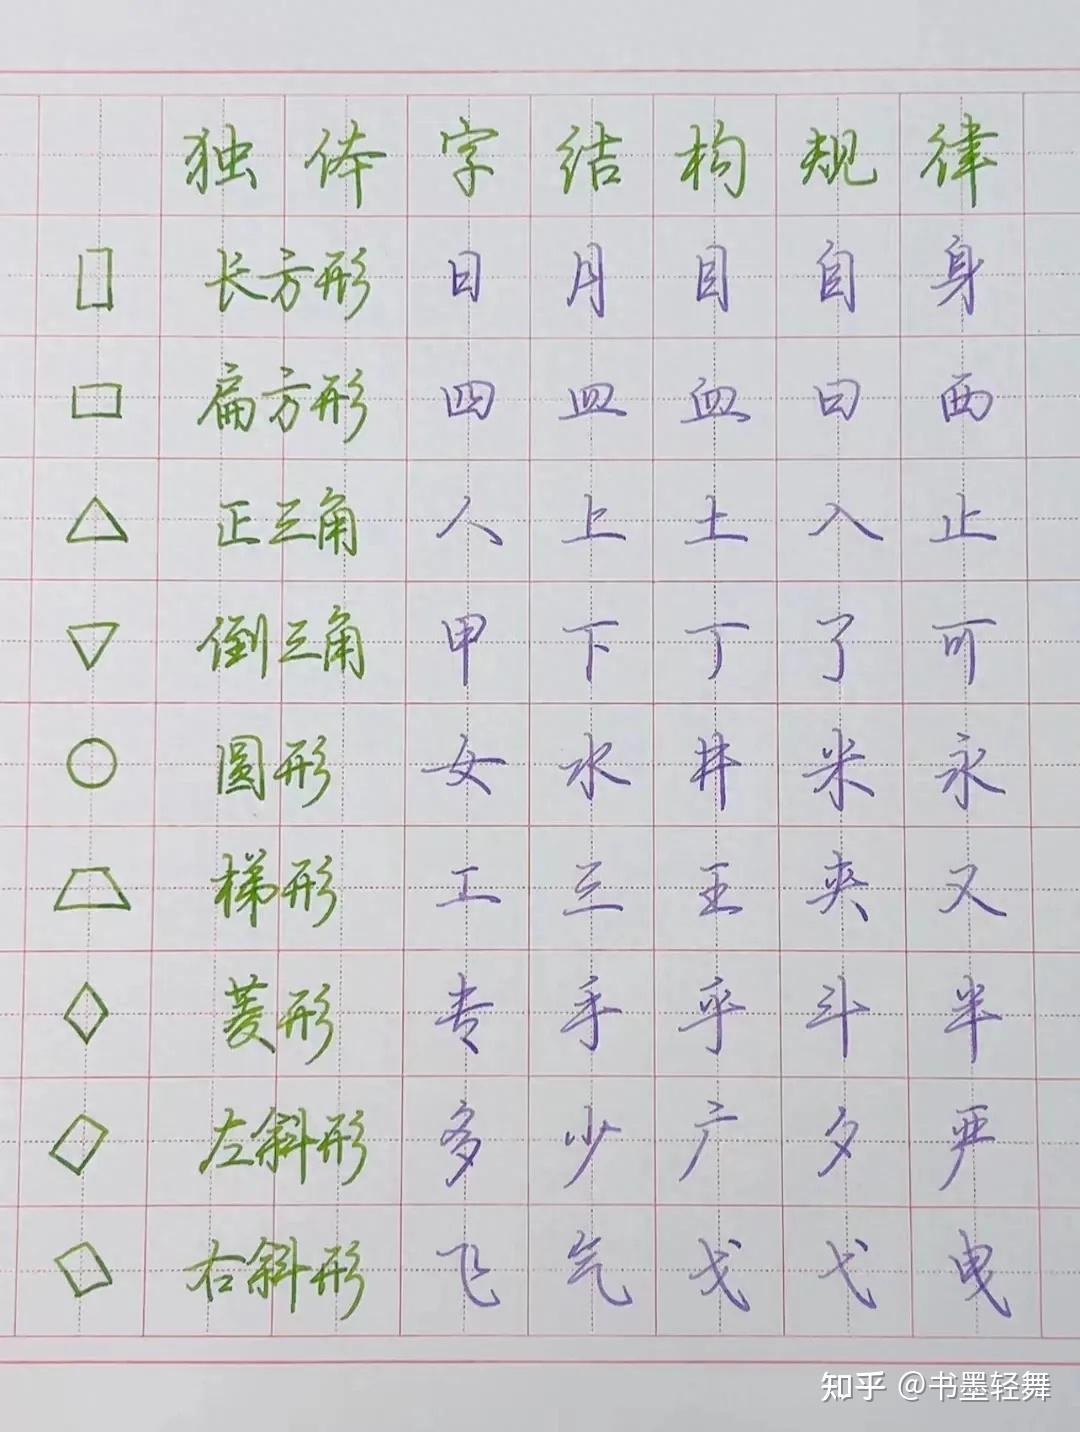 独体字结构规律
长方形 日 月 目 自 身
扁方形 四 皿 血 曰 西
正三角 人 上 土 入 止
倒三角 甲 下 丁 了 可
圆形 女 水 井 米 永
梯形 工 三 王 夹 又
菱形 专 手 乎 斗 半
左斜形 多 少 广 夕 严
右斜形 飞 气 戈 弋 曳
知乎 @书墨轻舞